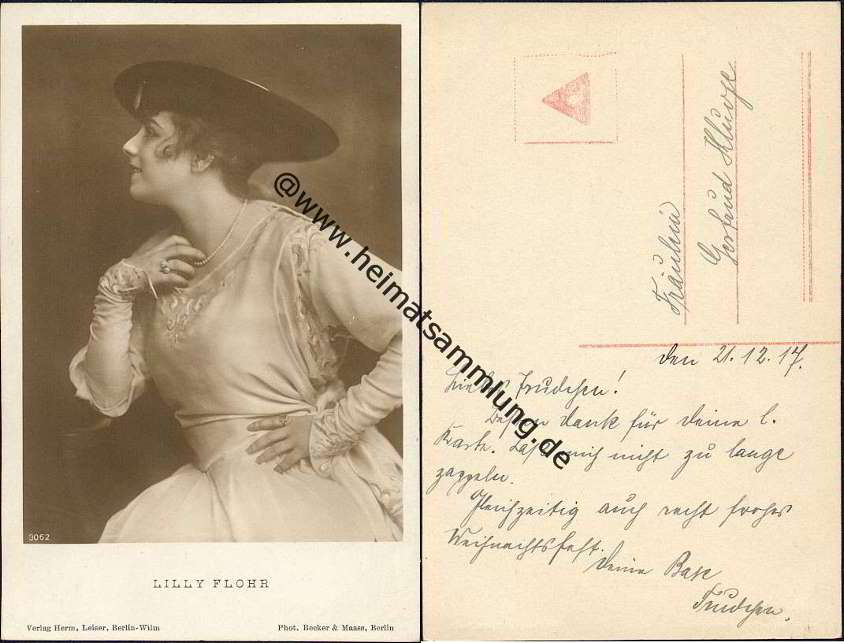 3062
LILLY FLOHR
Verlag Herm, Leiser, Berlin-Wilm
Phot. Becker & Maass, Berlin
@www.heimatsammlung.de
Fräulein
Gertrud
den 21.12.17.
Liebes Trudchen!
Besten Dank für Deine l.
Karte. Laß mich nicht zu lange
zappeln.
Gleichzeitig auch recht frohes
Weihnachtsfest.
Deine Base
Trudchen.